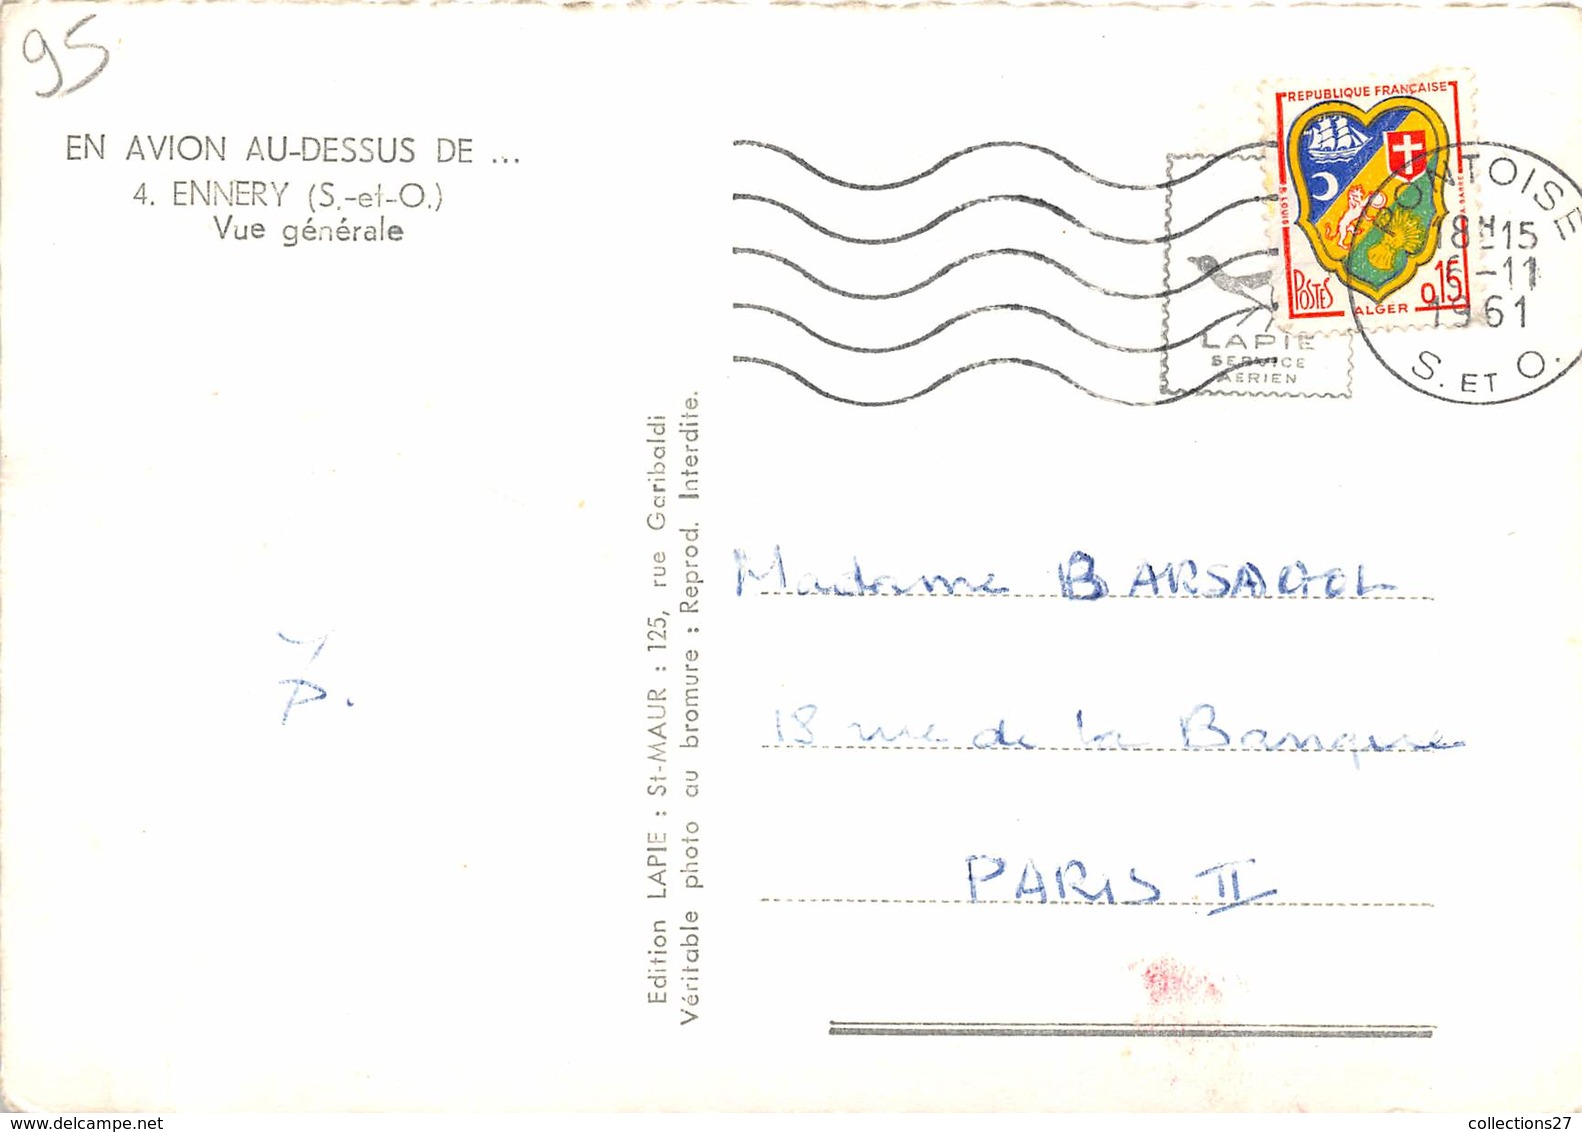 95
EN AVION AU-DESSUS DE ...
4. ENNERY (S.-et-O.)
Vue générale
REPUBLIQUE FRANÇAISE
POSTES
ALGER
0,15
PONTOISE
18H15
-11
1961
S. ET O.
LAPIE
SERVICE
AERIEN
Edition LAPIE : St-MAUR : 125, rue Garibaldi
Véritable photo au bromure : Reprod. Interdite.
Madame
18 rue de la Banque
PARIS II
delcampe.net
collections27